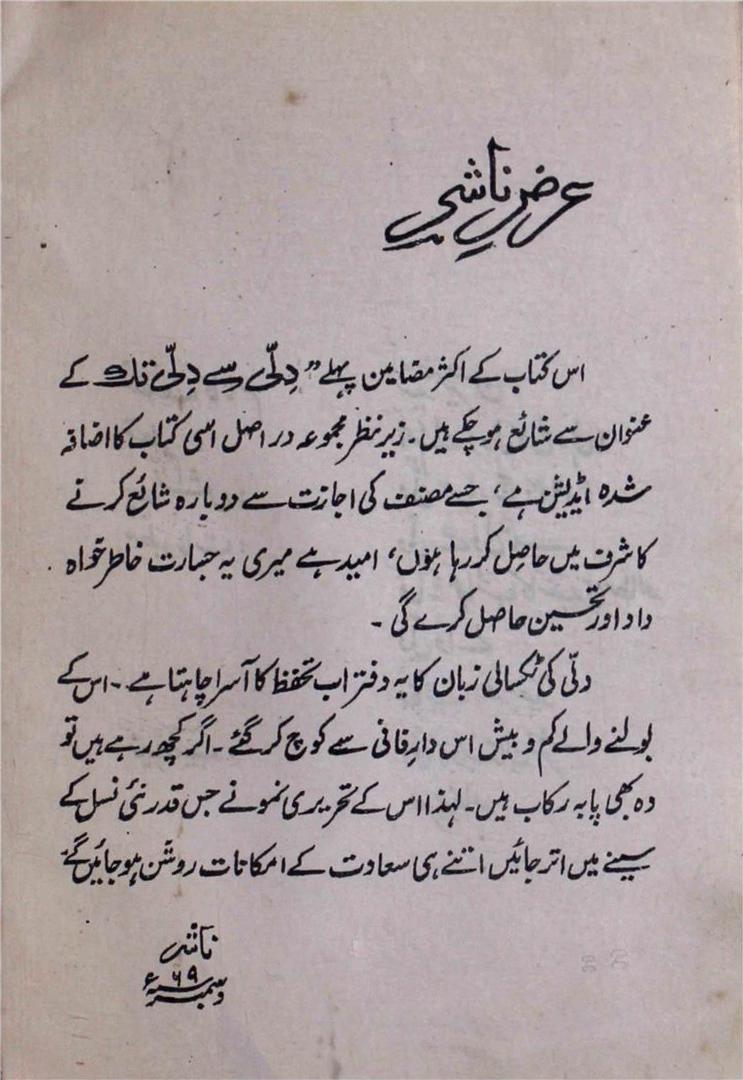 عرضِ ناشر
اس کتاب کے اکثر مضامین پہلے "دِلّی سے دِلّی تک کے
عنوان سے شائع ہو چکے ہیں۔ زیر نظر مجموعہ در اصل اسی کتاب کا اضافہ
شدہ ایڈیشن ہے، جسے مصنف کی اجازت سے دوبارہ شائع کرنے
کا شرف میں حاصل کر رہا ہوں، امید ہے میری یہ جسارت خاطر خواہ
داد اور تحسین حاصل کرے گی۔
دلّی کی ٹکسالی زبان کا یہ دفتر اب تحفظ کا آسرا چاہتا ہے۔ اس کے
بولنے والے کم و بیش اس دارِ فانی سے کوچ کر گئے۔ اگر کچھ رہے ہیں تو
وہ بھی پا بہ رکاب ہیں۔ لہذا اس کے تحریری نمونے جس قدر نئی نسل کے
سینے میں اتر جائیں اتنے ہی سعادت کے امکانات روشن ہو جائیں گے
ناشر
دسمبر ۶۹ء